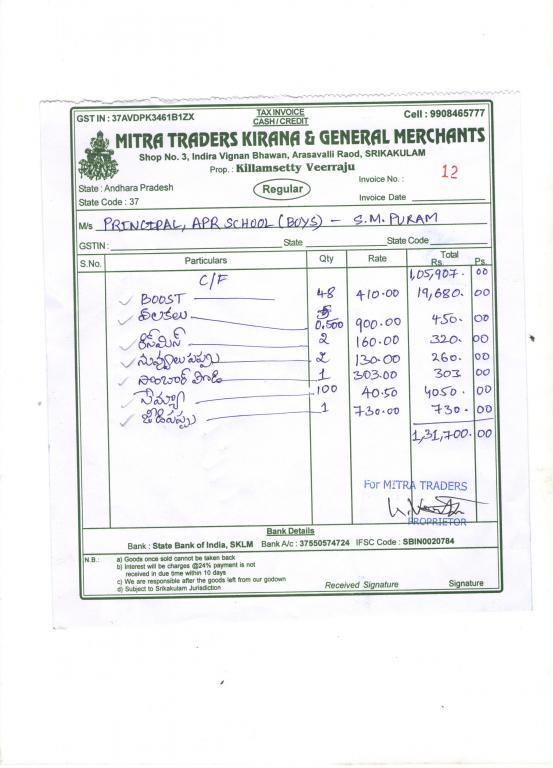 GST IN : 37AVDPK3461B1ZX
TAX INVOICE
CASH / CREDIT
Cell : 9908465777
MITRA TRADERS KIRANA & GENERAL MERCHANTS
Shop No. 3, Indira Vignan Bhawan, Arasavalli Raod, SRIKAKULAM
Prop. : Killamsetty Veerraju
State : Andhara Pradesh
State Code : 37
Regular
Invoice No. : 12
Invoice Date
M/s PRINCIPAL, APR SCHOOL (BOYS) - S.M. PURAM
GSTIN : State State Code
S.No. Particulars Qty Rate Total Rs. Ps.
C/F 1,05,907. 00
BOOST 48 410.00 19,680. 00
యాలకలు 0.500 900.00 450. 00
2 160.00 320. 00
నువ్వులు పప్పు 2 130.00 260. 00
సాంబార్ పొడి 1 303.00 303 00
సేమ్యా 100 40.50 4050. 00
జీడిపప్పు 1 730.00 730. 00
1,31,700. 00
For MITRA TRADERS
PROPRIETOR
Bank Details
Bank : State Bank of India, SKLM Bank A/c : 37550574724 IFSC Code : SBIN0020784
N.B. : a) Goods once sold cannot be taken back
b) Interest will be charges @24% payment is not
received in due time within 10 days
c) We are responsible after the goods left from our godown
d) Subject to Srikakulam Jurisdiction
Received Signature Signature